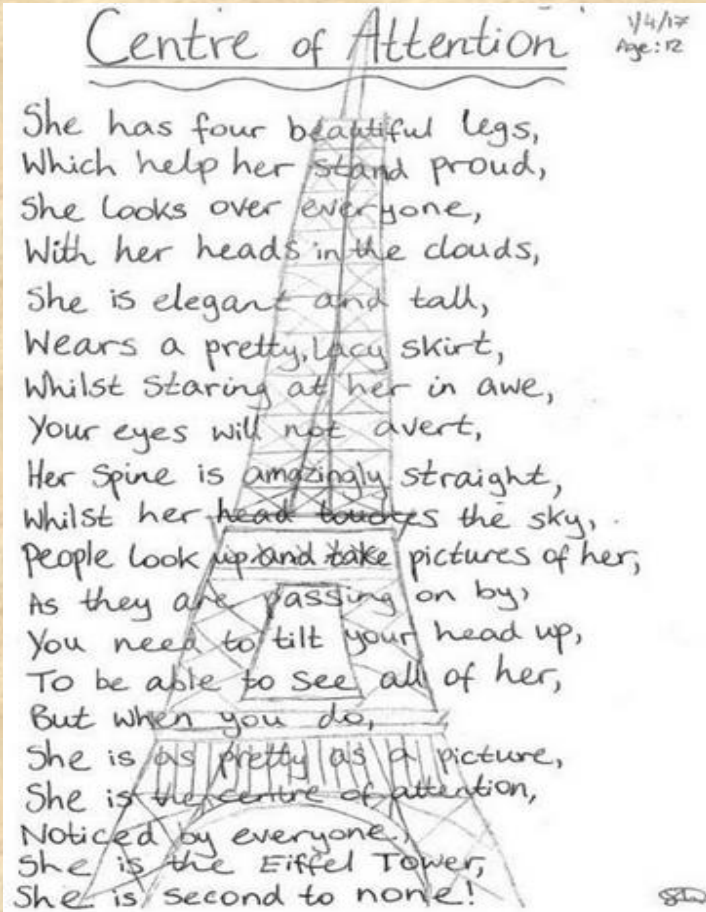 Centre of Attention
1/4/17
Age: 12
She has four beautiful legs,
Which help her stand proud,
She looks over everyone,
With her heads in the clouds,
She is elegant and tall,
Wears a pretty, lacy skirt,
Whilst staring at her in awe,
Your eyes will not avert,
Her spine is amazingly straight,
Whilst her head touches the sky,
People look up and take pictures of her,
As they are passing on by,
You need to tilt your head up,
To be able to see all of her,
But when you do,
She is as pretty as a picture,
She is the centre of attention,
Noticed by everyone,
She is the Eiffel Tower,
She is second to none!